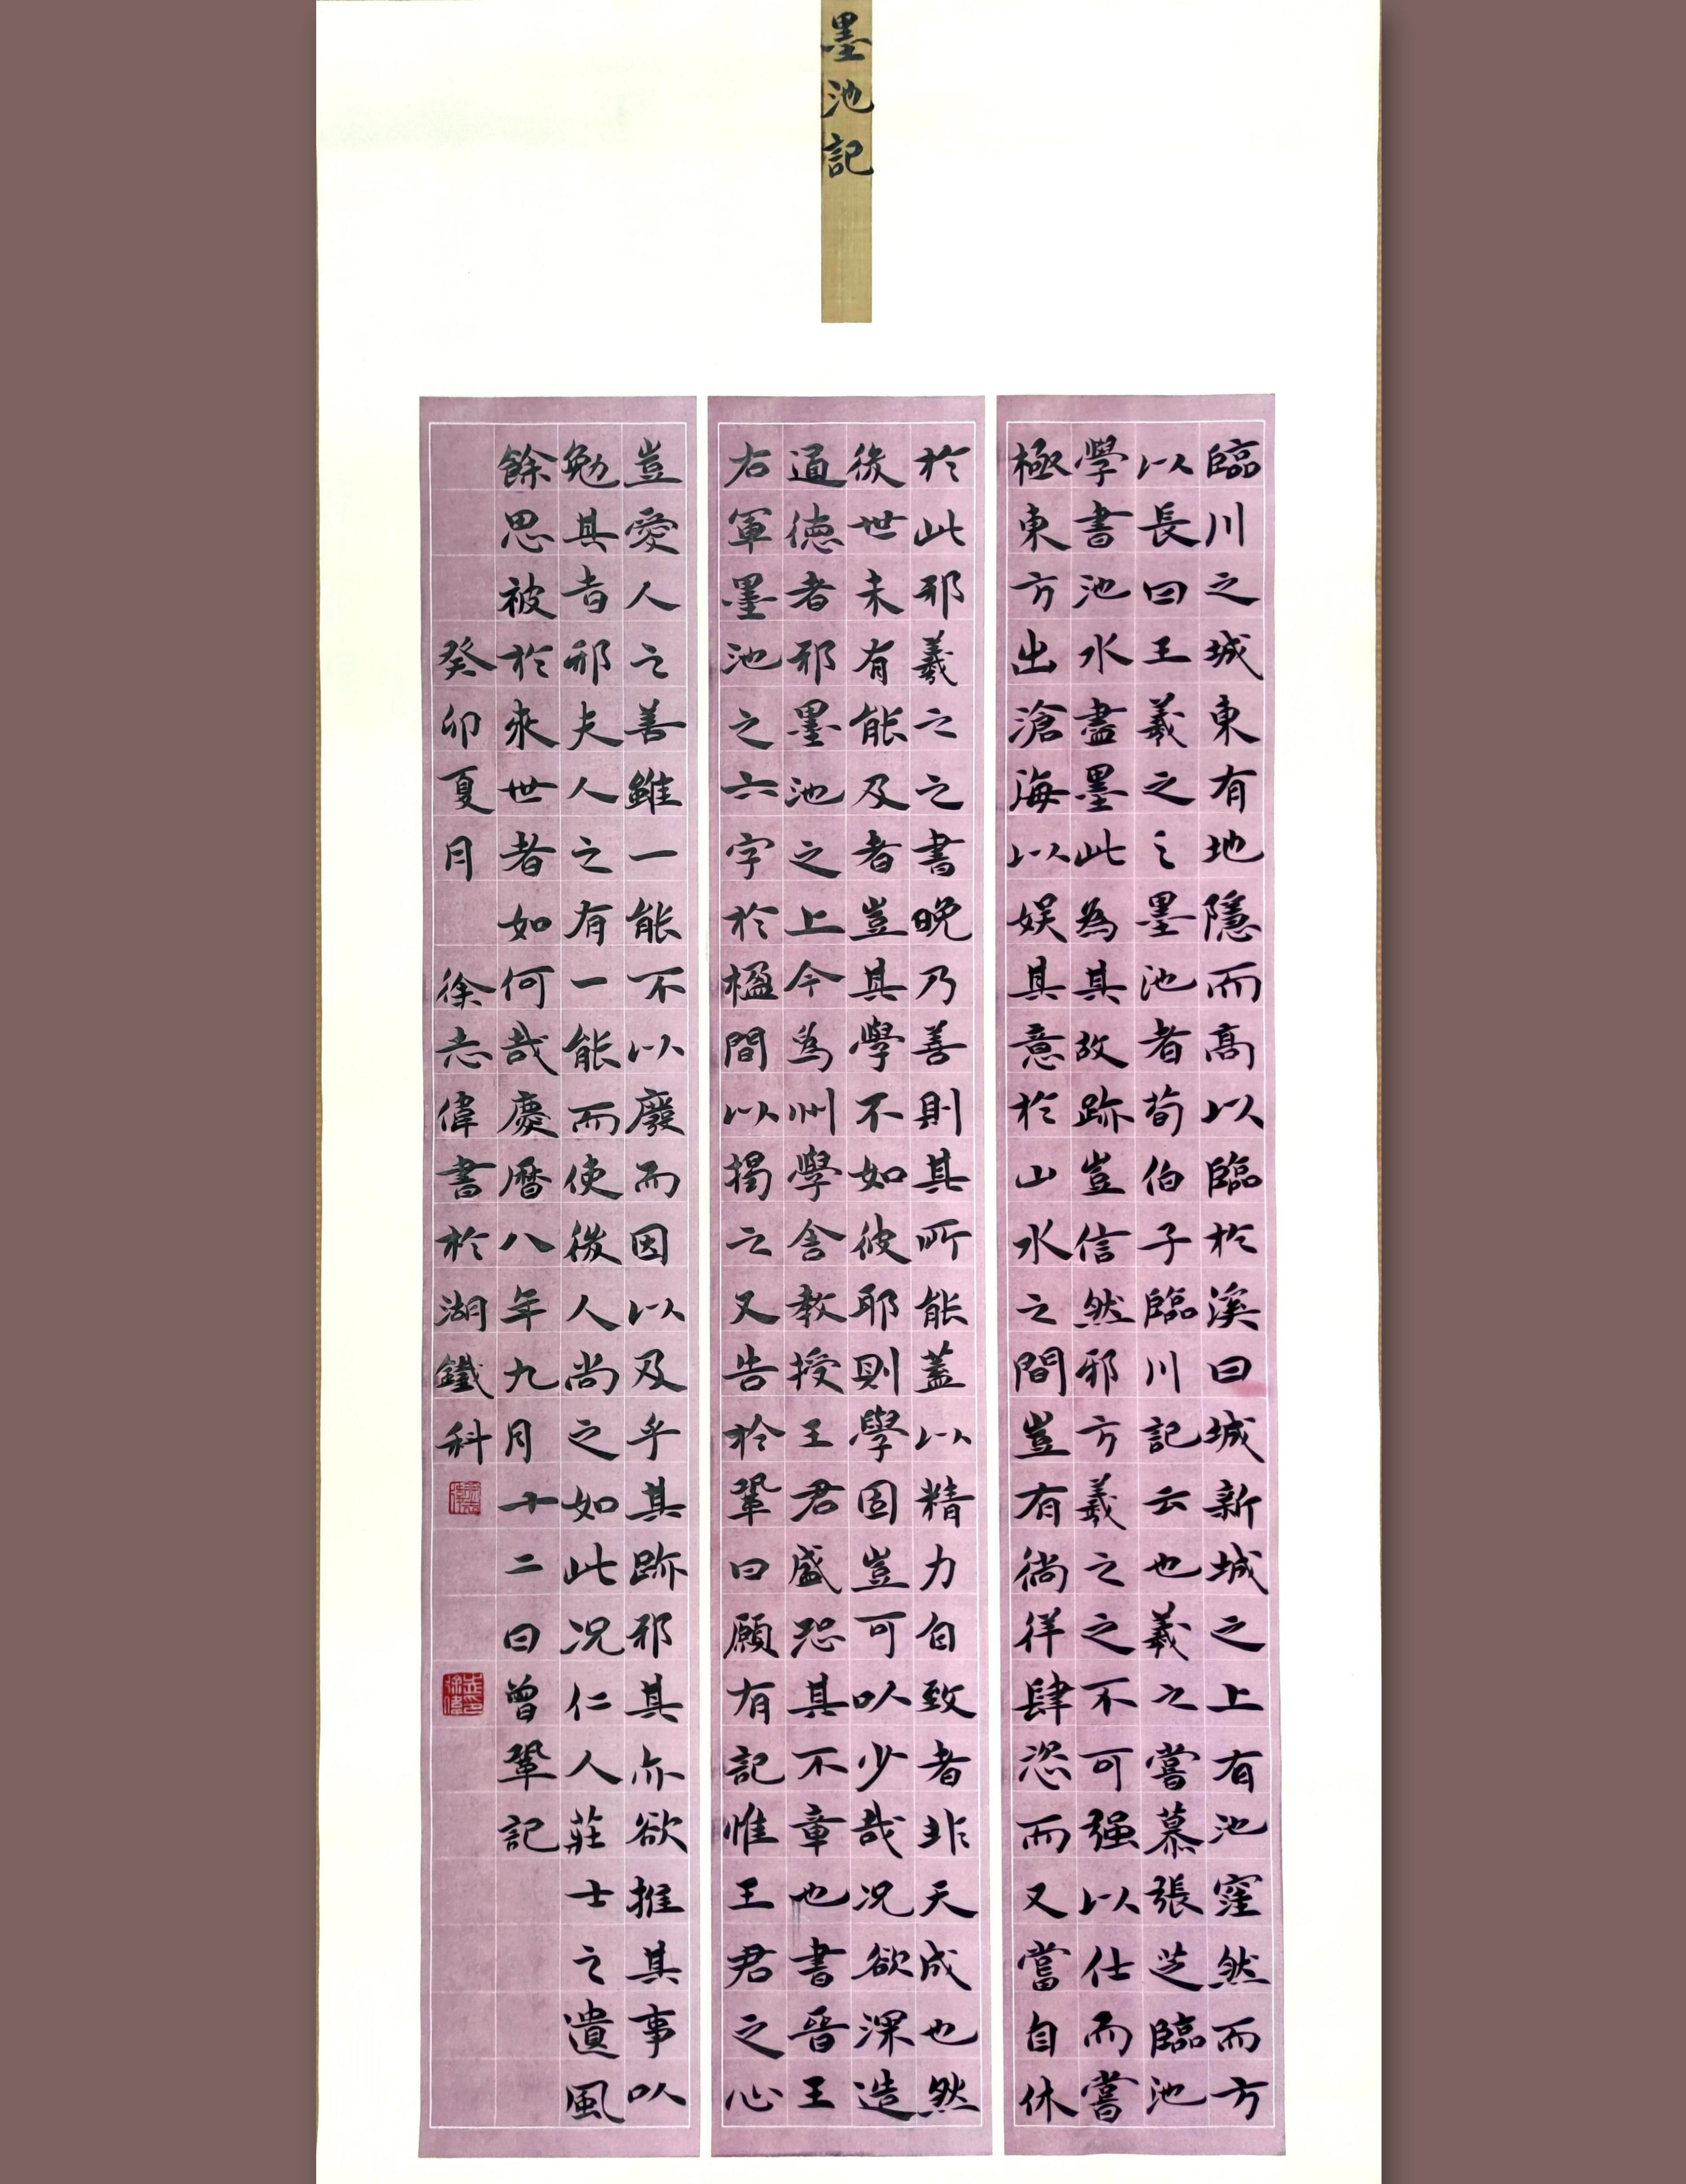 墨池記
臨川之城東有地隱而高以臨於溪曰城新城之上有池窪然而方
以長曰王羲之之墨池者荀伯子臨川記云也羲之嘗慕張芝臨池
學書池水盡墨此為其故跡豈信然邪方羲之之不可强以仕而嘗
極東方出滄海以娛其意於山水之間豈有徜徉肆恣而又當自休
於此邪羲之之書晚乃善則其所能蓋以精力自致者非天成也然
後世未有能及者豈其學不如彼耶則學固豈可以少哉况欲深造
道德者邪墨池之上今為州學舍教授王君盛恐其不章也書晉王
右軍墨池之六字於楹間以揭之又告於鞏曰願有記惟王君之心
豈愛人之善雖一能不以廢而因以及乎其跡邪其亦欲推其事以
勉其者邪夫人之有一能而使後人尚之如此况仁人莊士之遺風
餘思被於來世者如何哉慶曆八年九月十二日曾鞏記
癸卯夏月 徐志偉書於湖鐵科